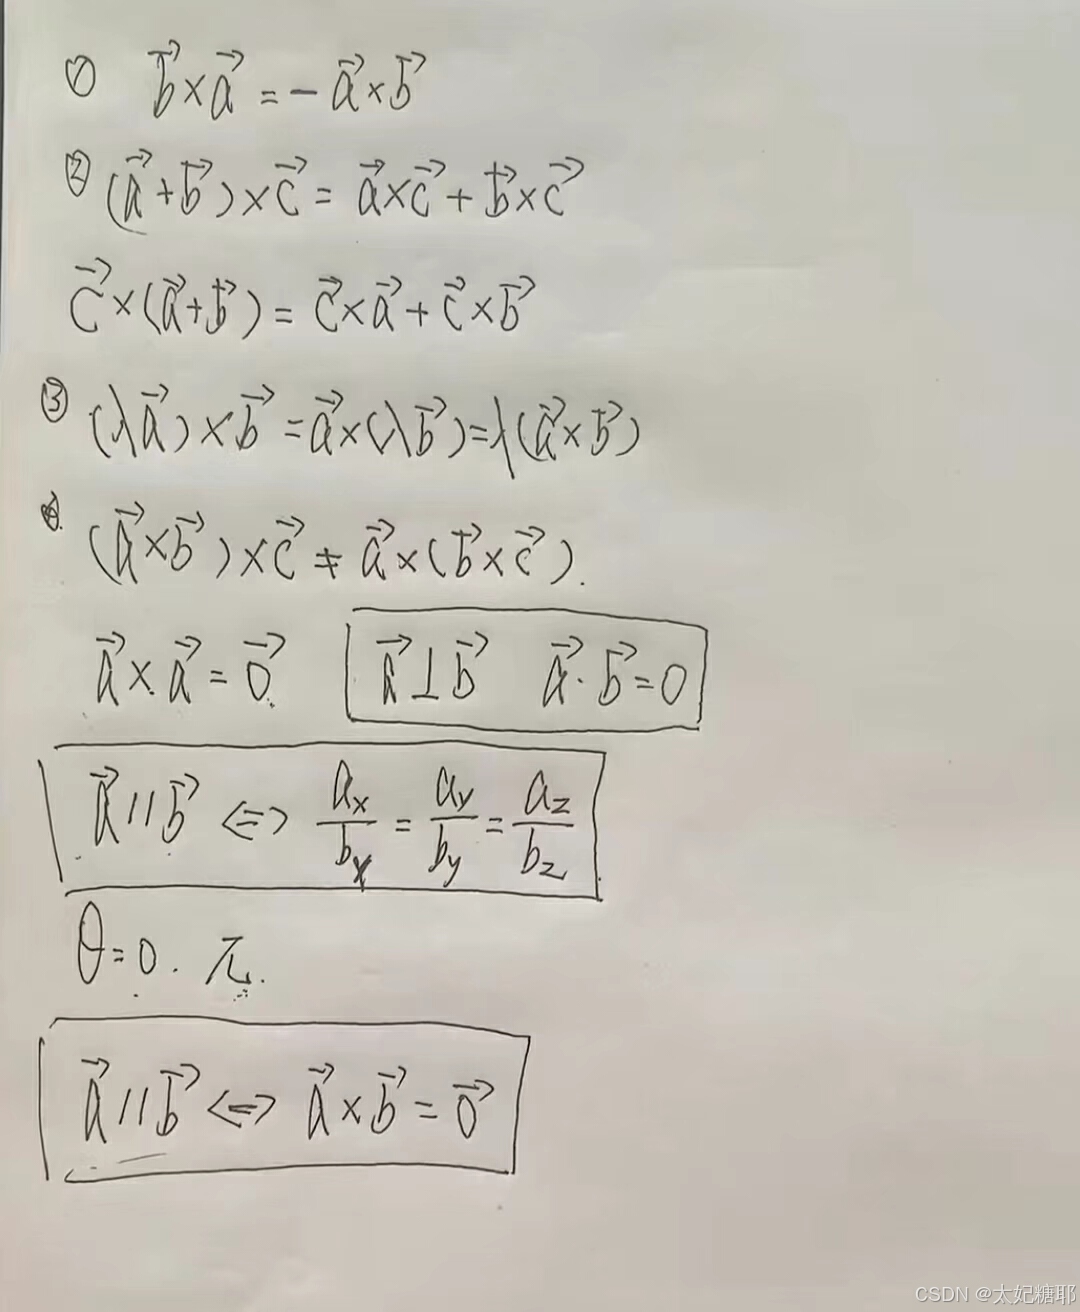 ① b⃗ × a⃗ = - a⃗ × b⃗
② (a⃗ + b⃗) × c⃗ = a⃗ × c⃗ + b⃗ × c⃗
c⃗ × (a⃗ + b⃗) = c⃗ × a⃗ + c⃗ × b⃗
③ (λa⃗) × b⃗ = a⃗ × (λb⃗) = λ(a⃗ × b⃗)
④ (a⃗ × b⃗) × c⃗ ≠ a⃗ × (b⃗ × c⃗).
a⃗ × a⃗ = 0⃗ a⃗ ⊥ b⃗ a⃗ · b⃗ = 0
a⃗ // b⃗ ⇔ aₓ/bₓ = a_y/b_y = a_z/b_z
θ = 0. π.
a⃗ // b⃗ ⇔ a⃗ × b⃗ = 0⃗
CSDN @太妃糖耶